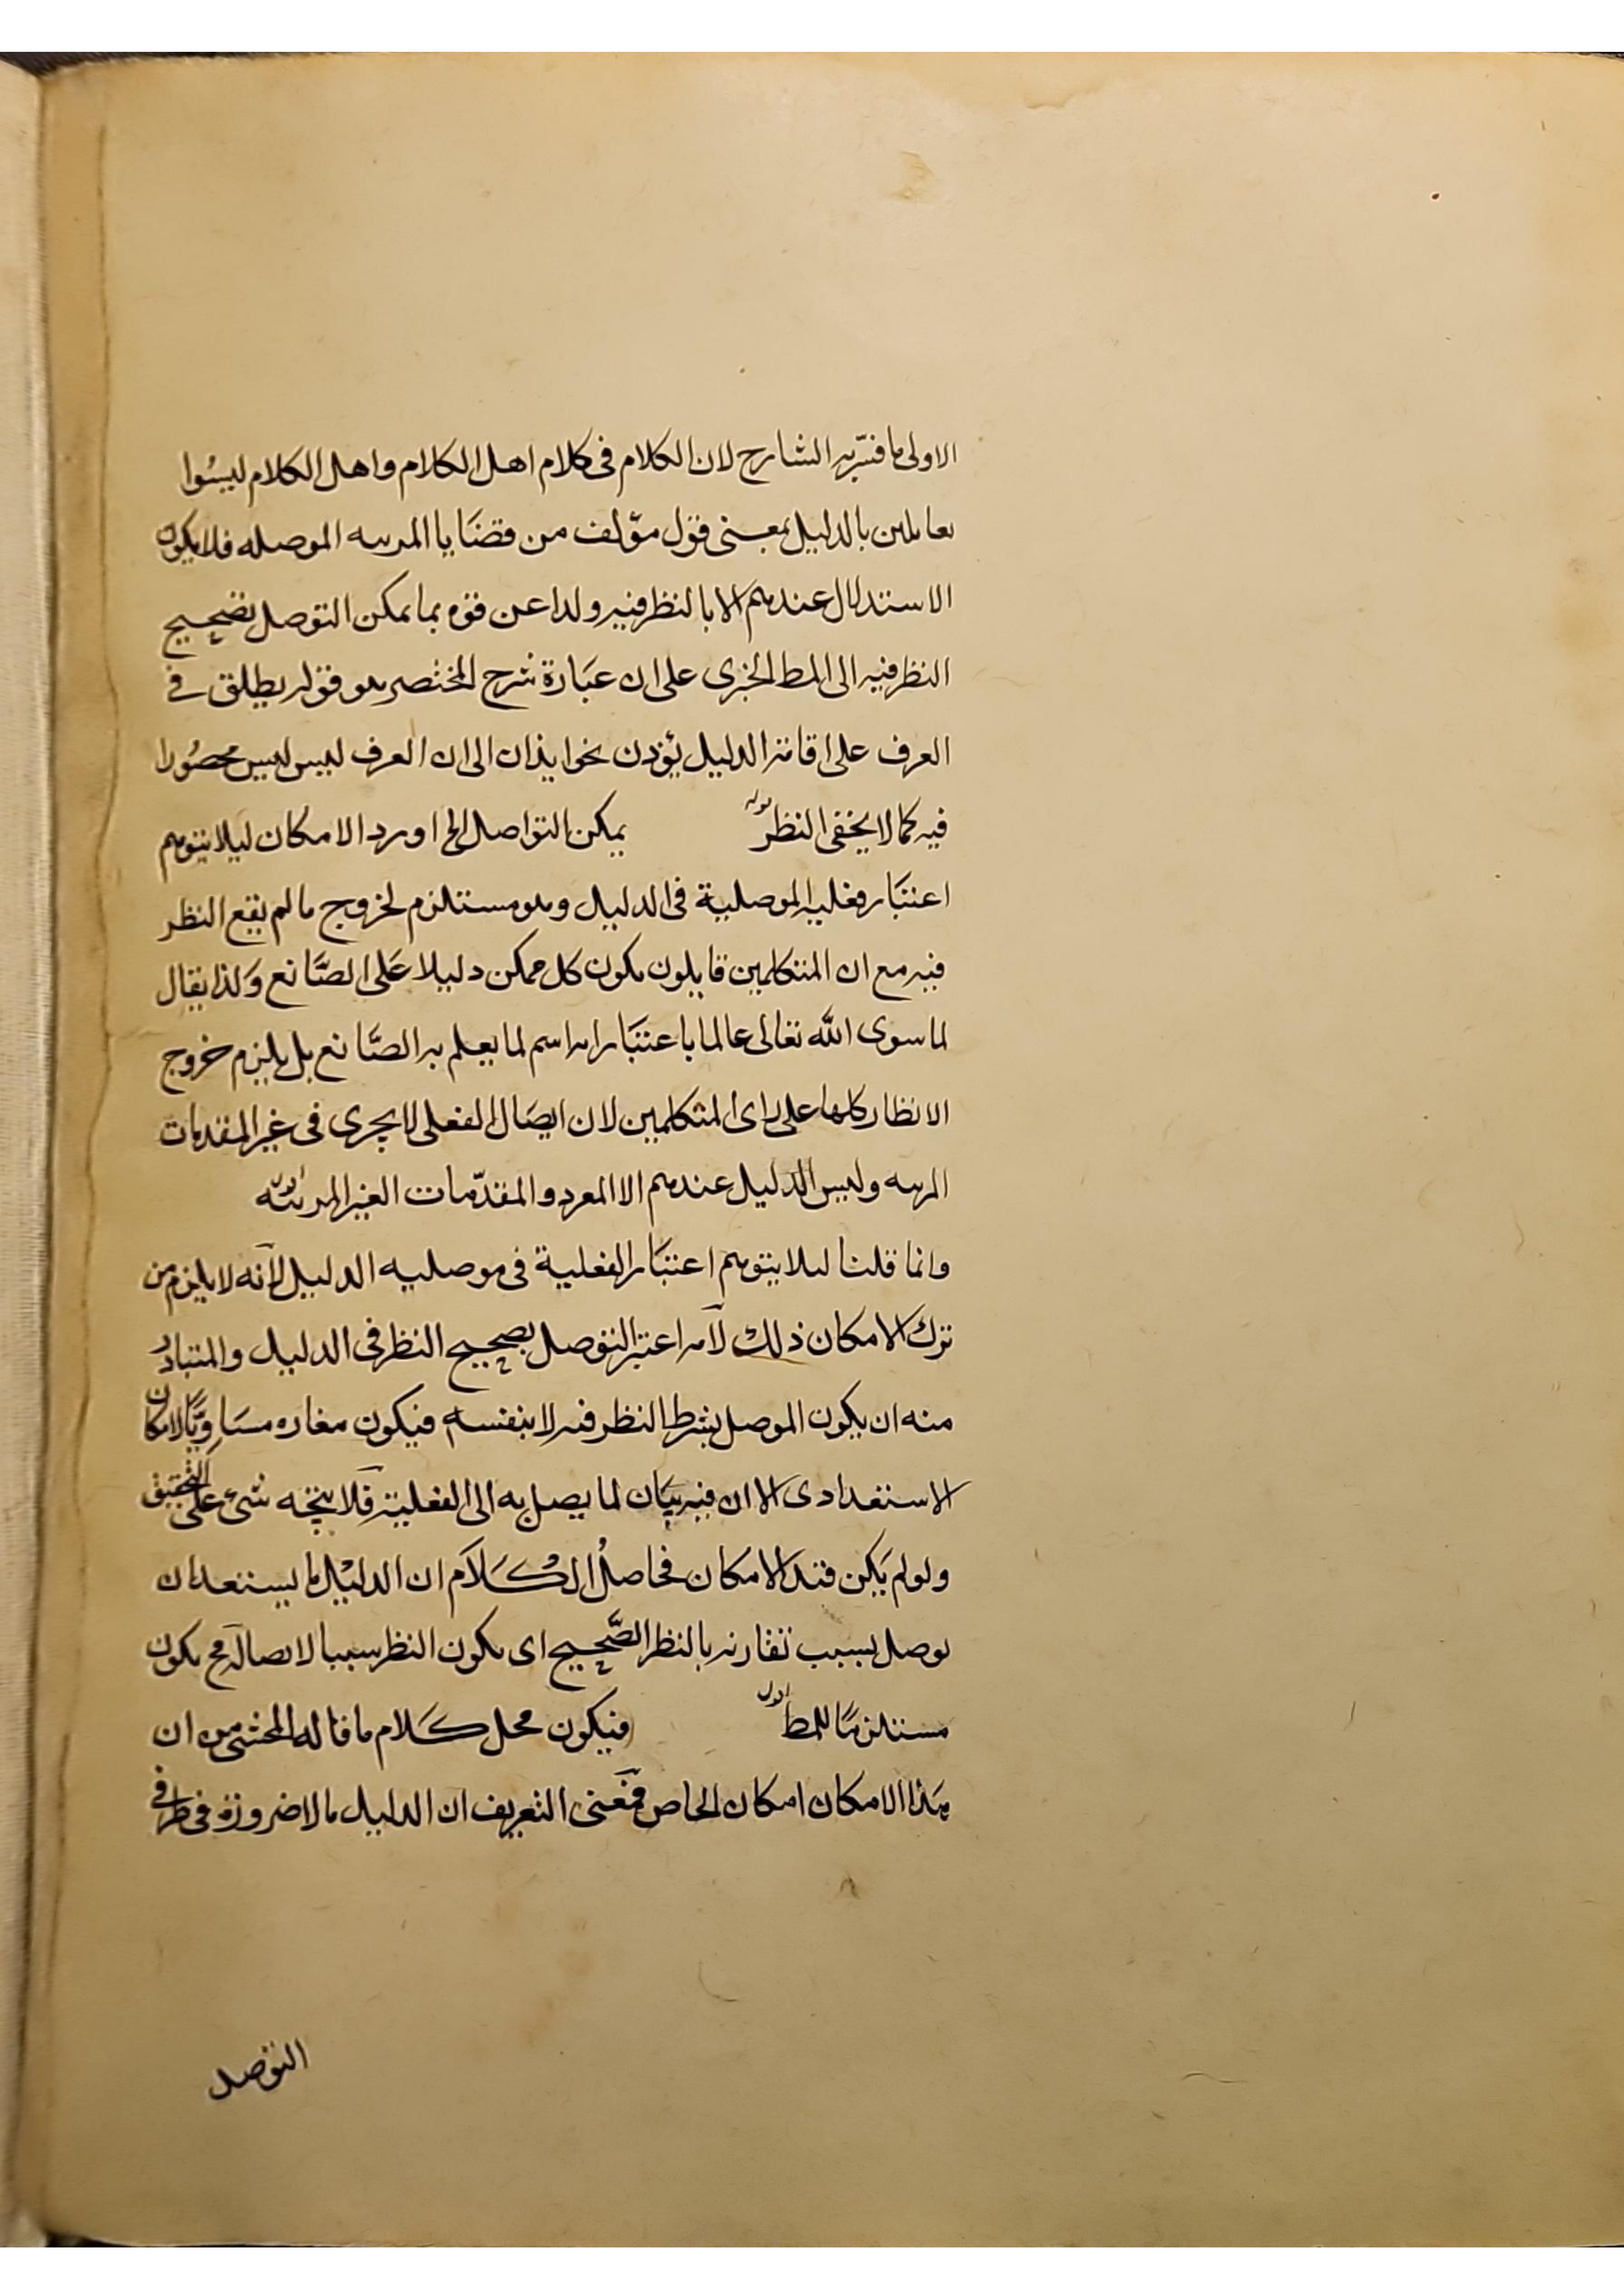 الاولى ما فسّر به الشارح لان الكلام فى كلام اهل الكلام واهل الكلام ليسُوا
بقايلين بالدليل بمعنى قول مؤلف من قضَايا المرتبه الموصله فلا يكون
الاستدلال عندهم الا بالنظر فيه ولذا عن قوه بما يمكن التوصل بصَحيح
النظر فيه الى المط الخبرى على ان عبَارة شرح المختصر هو قوله يطلق فى
العرف على اقامة الدليل يؤذن نحوا يذان الى ان العرف ليس ليس محصُورا
فيه كما لا يخفى النظر قوله يمكن التواصل الخ اورد الامكان ليلا يتوهم
اعتبَار فعلية الموصلية فى الدليل وهو مستلزم لخروج ما لم يقع النظر
فيه مع ان المتكلمين قايلون بكون كل ممكن دليلا عَلى الصَّانع وَلذا يقال
لما سوى الله تعالى عالما باعتبَار انه اسم لما يعلم به الصَّانع بل يلزم خروج
الانظار كلها على راى المتكلمين لان ايصَال الفعلى لا يجرى فى غير المقدمات
المرتبه وليس الدليل عندهم الا المفرد والمقدّمات الغير المرتبه قوله
وانما قلنا ليلا يتوهم اعتبَار الفعلية فى موصليه الدليل لأنه لا يلزم من
ترك الامكان ذلك لأنه اعتبر التوصل بصحيح النظر فى الدليل والمتبادر
منه ان يكون الموصل بشرط النظر فيه لا بنفسه فيكون مفاده مسَاوِيًا لامكان
الاستعدادى الا ان فيه بيَان لما يصل به الى الفعلية فَلا يتجه شئ على التحقيق
ولو لم يَكن قيد الامكان فحاصلُ الكَلاَم ان الدليْل ما يستعد ان
يوصل بسبب تقارنه بالنظر الصَّحيح اى بكون النظر سببا لايصاله مح يكون
مستلزمًا للمط قوله فيكون محل كَلام ما قاله المحشى من ان
هَذا الامكان امكان الخاص فمَعنى التعريف ان الدليل ما لا ضرورة فى طرفى
التوصل